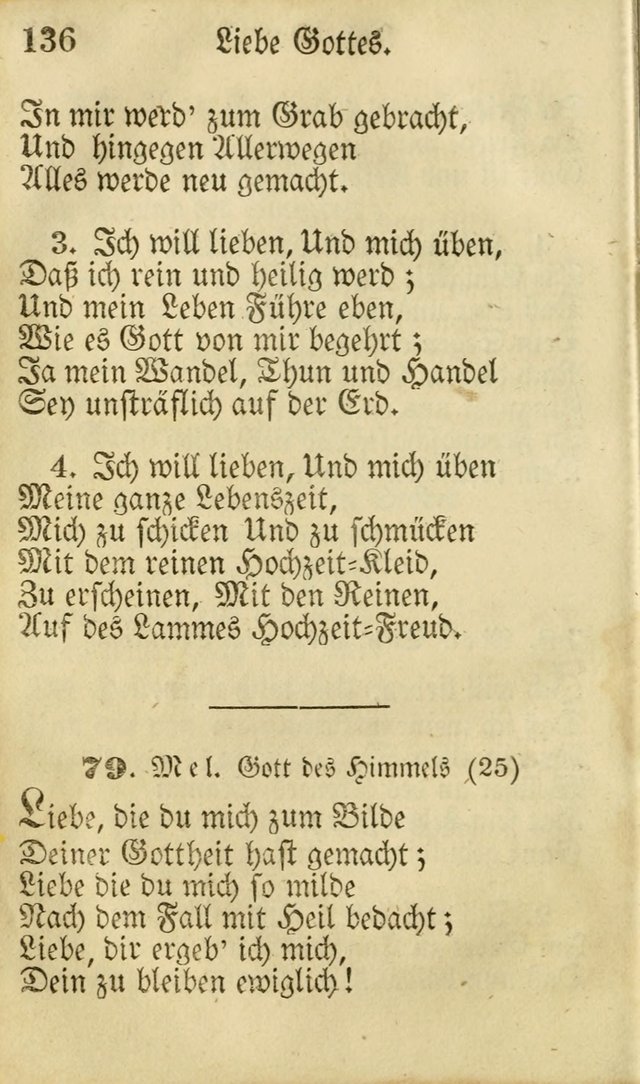 136 Liebe Gottes.
In mir werd' zum Grab gebracht,
Und hingegen Allerwegen
Alles werde neu gemacht.
3. Ich will lieben, Und mich üben,
Daß ich rein und heilig werd ;
Und mein Leben Führe eben,
Wie es Gott von mir begehrt ;
Ja mein Wandel, Thun und Handel
Sey unsträflich auf der Erd.
4. Ich will lieben, Und mich üben
Meine ganze Lebenszeit,
Mich zu schicken Und zu schmücken
Mit dem reinen Hochzeit-Kleid,
Zu erscheinen, Mit den Reinen,
Auf des Lammes Hochzeit-Freud.
79. Mel. Gott des Himmels (25)
Liebe, die du mich zum Bilde
Deiner Gottheit hast gemacht ;
Liebe die du mich so milde
Nach dem Fall mit Heil bedacht ;
Liebe, dir ergeb' ich mich,
Dein zu bleiben ewiglich!